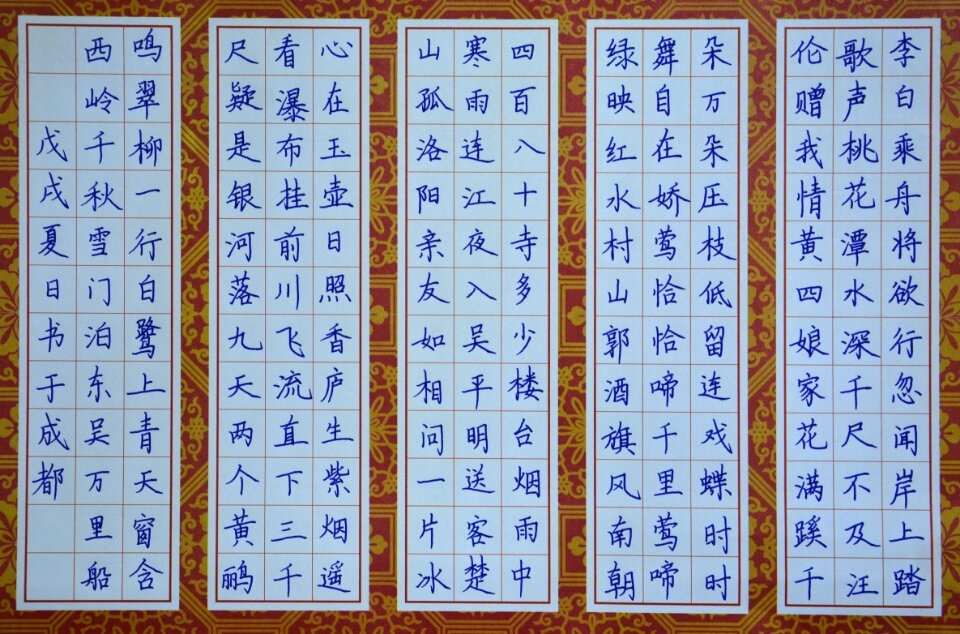 李白乘舟将欲行忽闻岸上踏
歌声桃花潭水深千尺不及汪
伦赠我情黄四娘家花满蹊千
朵万朵压枝低留连戏蝶时时
舞自在娇莺恰恰啼千里莺啼
绿映红水村山郭酒旗风南朝
四百八十寺多少楼台烟雨中
寒雨连江夜入吴平明送客楚
山孤洛阳亲友如相问一片冰
心在玉壶日照香庐生紫烟遥
看瀑布挂前川飞流直下三千
尺疑是银河落九天两个黄鹂
鸣翠柳一行白鹭上青天窗含
西岭千秋雪门泊东吴万里船
戊戌夏日书于成都